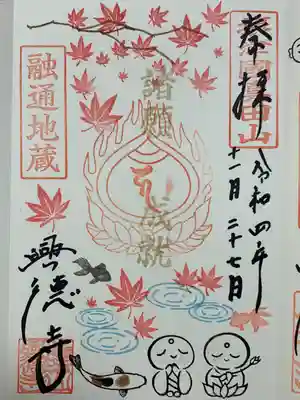 奉拝
令和四年
十一月二十七日
諸願成就
融通地蔵
興徳寺